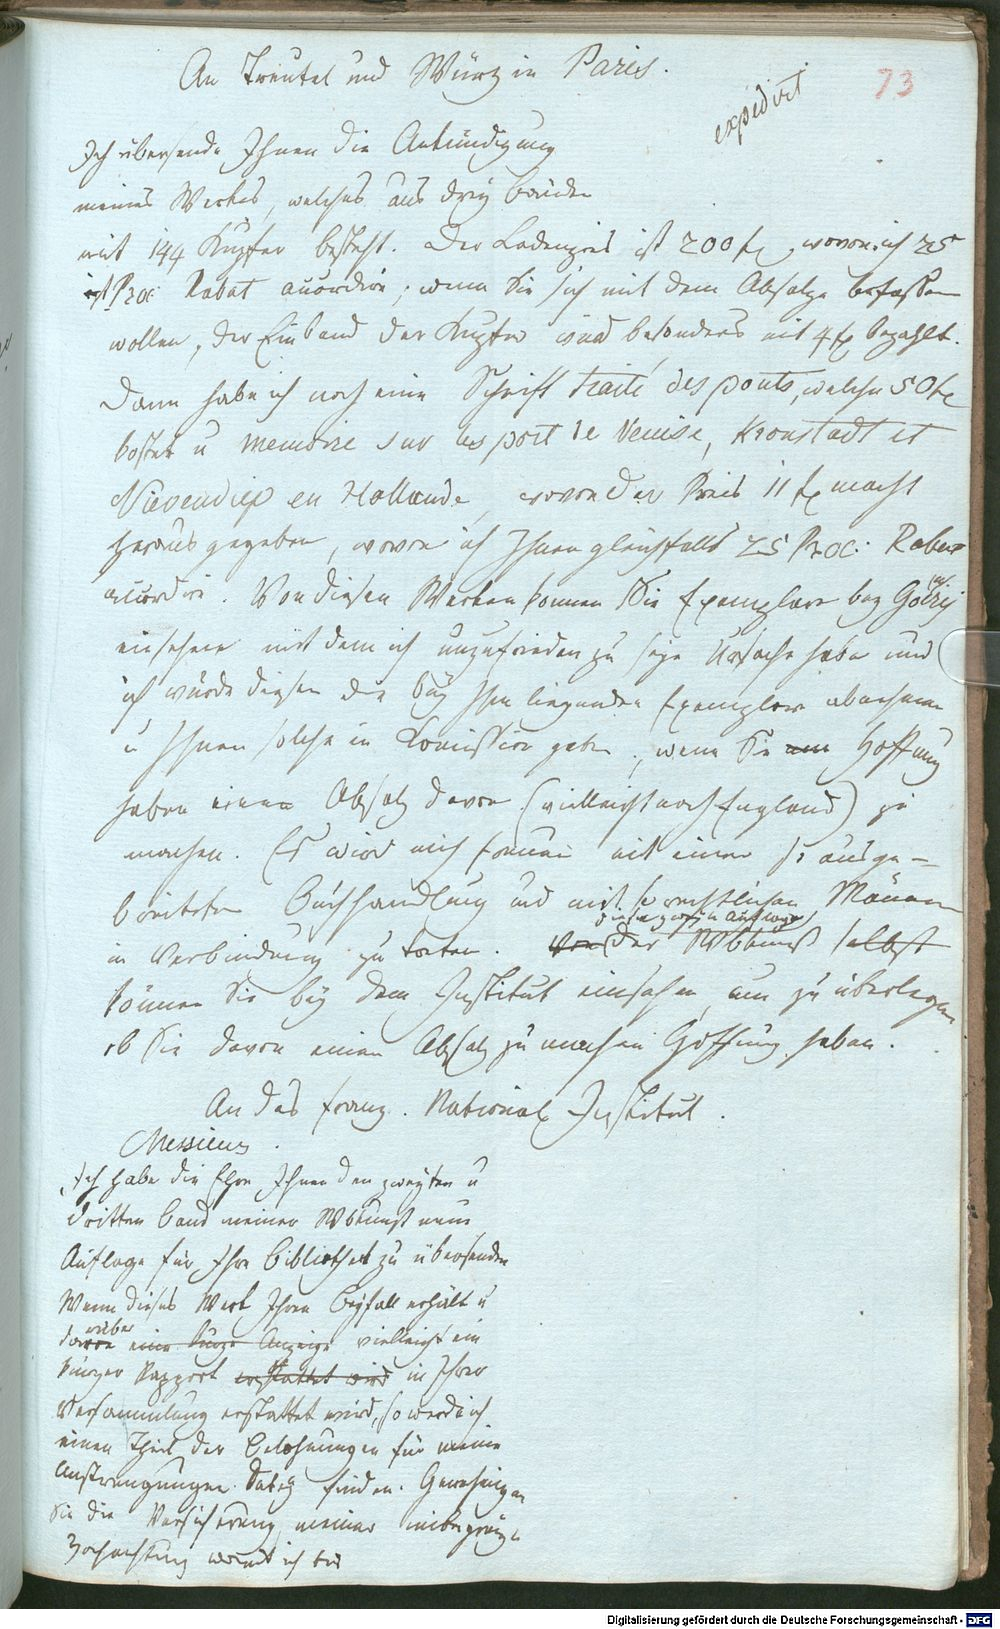 An Treutel und Würz in Paris.
73
expedirt
Ich übersende Ihnen die Ankündigung
meines Werkes, welches aus drey Bänden
mit 144 Kupfer besteht. Der Ladenpreis ist 200 fr, wovon ich 25
Proc: Rabat accordire; wenn Sie sich mit dem Absatze befassen
wollen, der Einband der Kupfer wird besonders mit 4 fr bezahlt.
Dann habe ich noch eine Schrift traité des ponts, welche 50 fr
kostet u memoire sur les port de Venise, Kronstadt et
Nievendiep en Hollande, wovon der Preis 11 fr macht
herausgegeben, wovon ich Ihnen gleichfalls 25 Proc: Rabat
accordire. Von diesen Werken können Sie Exemplare bey
einsehen mit dem ich unzufrieden zu seyn Ursache habe und
ich würde diesen die bey ihm liegenden Exemplare abnehmen
u Ihnen solche in Comission geben, wenn Sie Hoffnung
haben einen Absatz davon (vielleicht nach England) zu
machen. Es wird mich freuen mit einer so ausge-
breiteten Buchhandlung und mit so rechtlichen Mänern
in Verbindung zu tretten. von der Wbkunst selbst
können Sie bey dem Institut einsehen um zu überlegen
ob Sie davon einen Absatz zu machen Hoffnung haben.
An das franz. National Institut.
Messieurs
Ich habe die Ehre Ihnen den zweyten u
dritten Band meiner Wbkunst neue
Auflage für Ihre Bibliothek zu übersenden
Wenn dieses Werk Ihren Beyfall erhält u
darüber eine kurze Anzeige vielleicht ein
kurzer Rapport erstattet wird in Ihrer
Versammlung erstattet wird, so werde ich
einen Theil der Belohnungen für meine
Anstrengungen dabey finden. Genehmigen
Sie die Versicherung meiner unbegränzten
Hochachtung womit ich bin
Digitalisierung gefördert durch die Deutsche Forschungsgemeinschaft - DFG